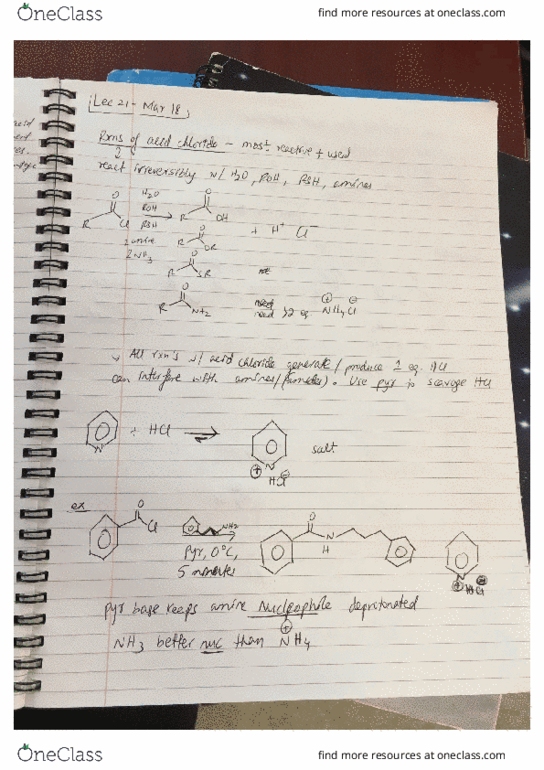 OneClass
find more resources at oneclass.com
Lec 21 - Mar 18
Rxns of acid chloride - most reactive + used
react irreversibly w/ H2O, ROH, RSH, amines
O
R Cl
H2O
ROH
RSH
2 amine
2 NH3
O
R OH
+ H+ Cl-
O
R OR
O
R SR
O
R NH2
need >2 eq NH4 Cl
All rxn's w/ acid chloride generate/produce 1 eq. HCl
can interfere with amines. Use pyr to scavage HCl
N + HCl
N
HCl
salt
ex
O
Cl
NH2
Pyr, 0°C,
5 minutes
O
N
H
N
H Cl
pyr base keeps amine Nucleophile deprotonated
NH3 better nuc than NH4
OneClass
find more resources at oneclass.com